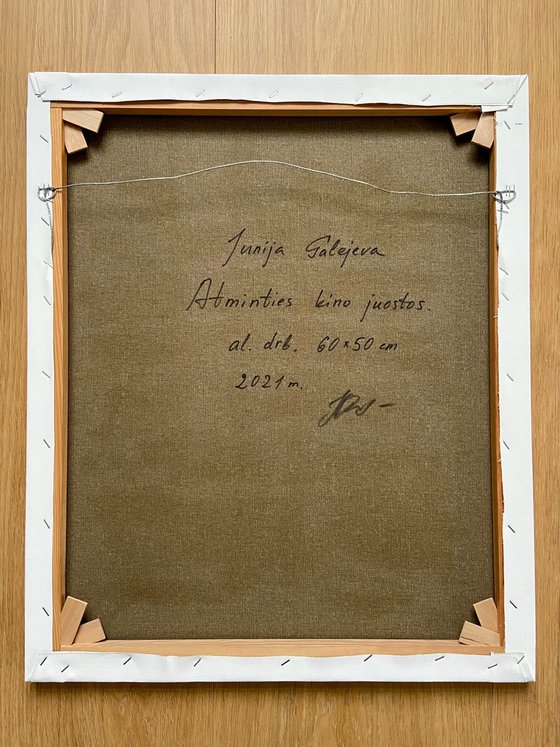 Junija Galejeva
Atminties kino juostos.
al. drb. 60×50 cm
2021 m.